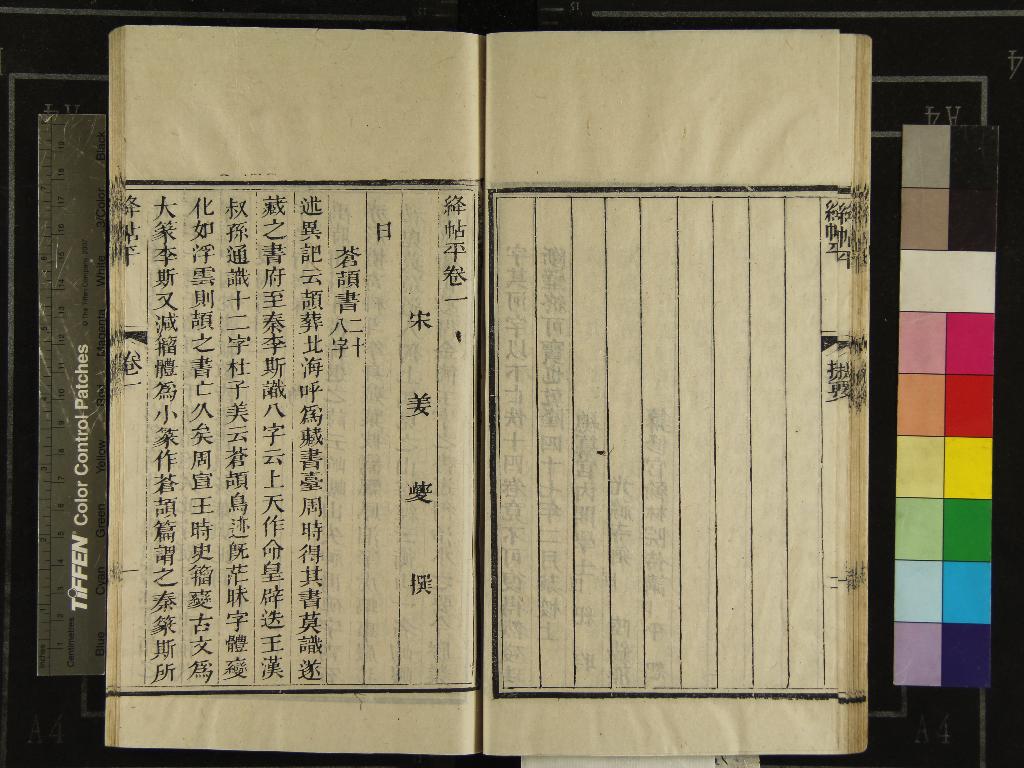 絳帖平
提要
絳帖平卷一
宋 姜 夔 撰
日
蒼頡書二十八字
述異記云頡葬北海呼爲藏書臺周時得其書莫識遂
藏之書府至秦李斯識八字云上天作命皇辟迭王漢
叔孫通識十二字杜子美云蒼頡鳥迹旣茫昧字體變
化如浮雲則頡之書亡久矣周宣王時史籀變古文爲
大篆李斯又減籀體爲小篆作蒼頡篇謂之秦篆斯所
絳帖平
卷一
TIFFEN Color Control Patches
Centimetres
Inches
Blue
Cyan
Green
Yellow
Red
Magenta
White
3/Color
Black
A4
A4
A4
A4